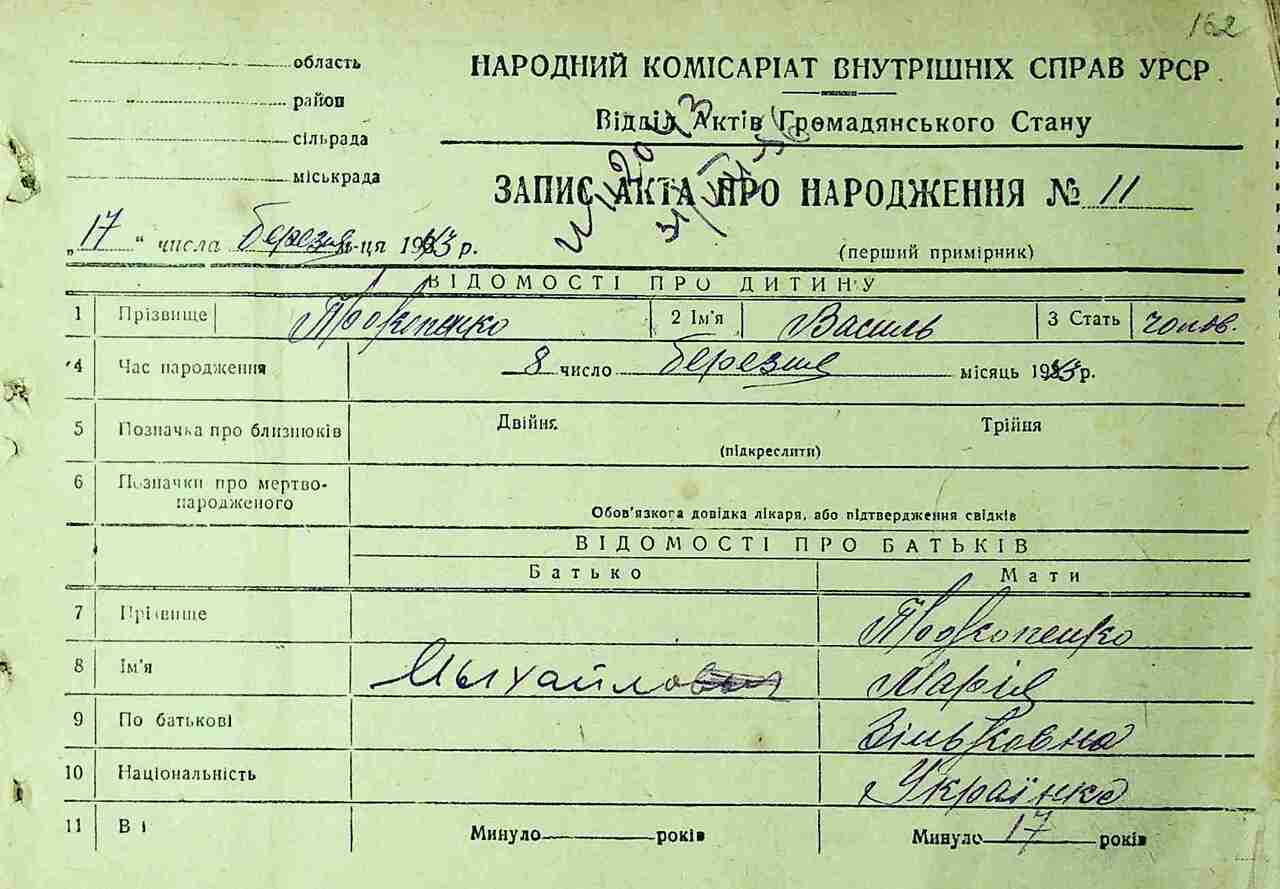 162
область
район
сільрада
міськрада
НАРОДНИЙ КОМІСАРІАТ ВНУТРІШНІХ СПРАВ УРСР
Відділ Актів Громадянського Стану
ЗАПИС АКТА ПРО НАРОДЖЕННЯ № 11
„17“ числа березня м-ця 1943 р.
(перший примірник)
ВІДОМОСТІ ПРО ДИТИНУ
1 Прізвище Прокопенко 2 Ім'я Василь 3 Стать чолов.
4 Час народження 8 число березня місяць 1943 р.
5 Позначка про близнюків Двійня Трійня
(підкреслити)
6 Позначки про мертво-
народженого
Обов'язкова довідка лікаря, або підтвердження свідків
ВІДОМОСТІ ПРО БАТЬКІВ
Батько Мати
7 Прізвище Прокопенко
8 Ім'я Мыхайло Марія
9 По батькові
10 Національність Українка
11 Ві Минуло років Минуло 17 років